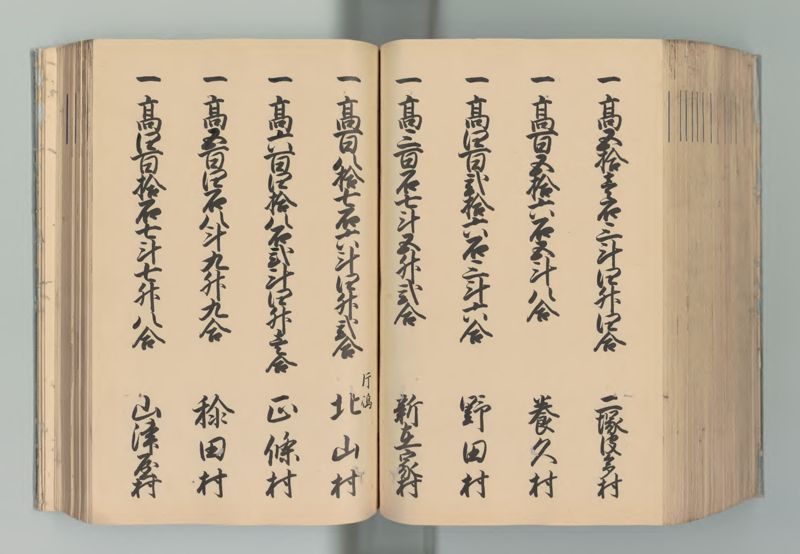 一 高五拾壱石三斗四升四合 二塚後村
一 高百五拾六石五斗八合 養久村
一 高四百弐拾六石三斗六合 野田村
一 高三百石七斗五升弐合 新在家村
一 高百八拾七石六斗四升弐合 片嶋 北山村
一 高六百四拾八石弐斗四升壱合 正條村
一 高五百四石八斗九升九合 稌田村
一 高四百拾石七斗七升八合 山津屋村